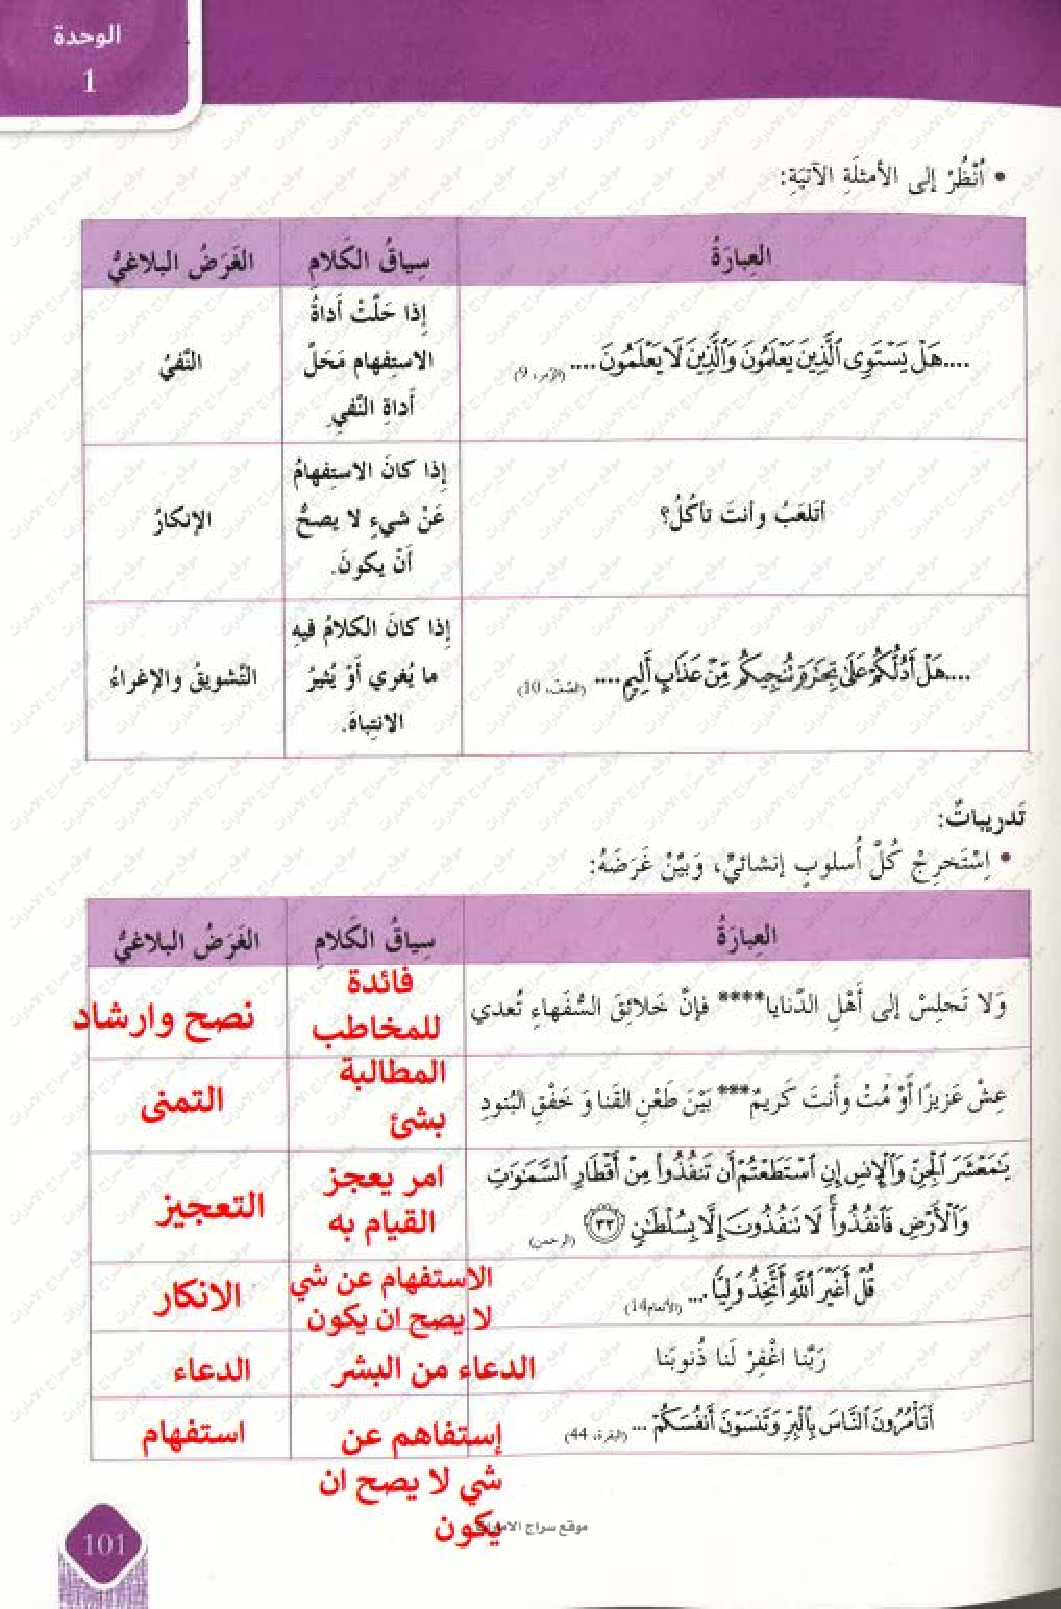 الوحدة
1
• اُنْظُرْ إلى الأمثلَةِ الآتيَةِ:
العِبارَةُ
سِياقُ الكَلامِ
الغَرَضُ البلاغيُّ
....هَلْ يَسْتَوِى الَّذِينَ يَعْلَمُونَ وَالَّذِينَ لَا يَعْلَمُونَ .... (الزمر، 9)
إذا حَلَّتْ أداةُ
الاستِفهامِ مَحَلَّ
أداةِ النَّفيِ.
النَّفيُ
أتَلعَبُ وأنتَ تأكُلُ؟
إذا كانَ الاستِفهامُ
عَنْ شيءٍ لا يصحُّ
أَنْ يكونَ.
الإنكارُ
....هَلْ أَدُلُّكُمْ عَلَى تِجَٰرَةٍ تُنجِيكُم مِّنْ عَذَابٍ أَلِيمٍ .... (الصّف، 10)
إذا كانَ الكلامُ فيهِ
ما يُغري أَوْ يُثيرُ
الانتِباهَ.
التَّشويقُ والإغراءُ
تَدريباتٌ:
• اِسْتَخرِجْ كُلَّ أُسلوبٍ إنشائيٍّ، وَبيِّنْ غَرَضَهُ:
العِبارَةُ
سِياقُ الكَلامِ
الغَرَضُ البلاغيُّ
وَلا تَجلِسْ إلى أَهْلِ الدَّنايا**** فإنَّ خَلائِقَ السُّفَهاءِ تُعدي
فائدة
للمخاطب
نصح وارشاد
عِشْ عَزيزًا أَوْ مُتْ وأَنتَ كَريمٌ*** بَيْنَ طَعْنِ القَنا وَ خَفْقِ البُنودِ
المطالبة
بشئ
التمنى
يَٰمَعْشَرَ الْجِنِّ وَالْإِنسِ إِنِ اسْتَطَعْتُمْ أَن تَنفُذُوا۟ مِنْ أَقْطَارِ السَّمَٰوَٰتِ
وَالْأَرْضِ فَانفُذُوا۟ لَا تَنفُذُونَ إِلَّا بِسُلْطَٰنٍ ٣٣ (الرحمن)
امر يعجز
القيام به
التعجيز
قُلْ أَغَيْرَ اللَّهِ أَتَّخِذُ وَلِيًّا ... (الأنعام14)
الاستفهام عن شي
لا يصح ان يكون
الانكار
رَبَّنا اغْفِرْ لَنا ذُنوبَنا
الدعاء من البشر
الدعاء
أَتَأْمُرُونَ النَّاسَ بِالْبِرِّ وَتَنسَوْنَ أَنفُسَكُمْ ... (البقرة، 44)
إستفاهم عن
شي لا يصح ان
يكون
استفهام
موقع سراج الامارات
101